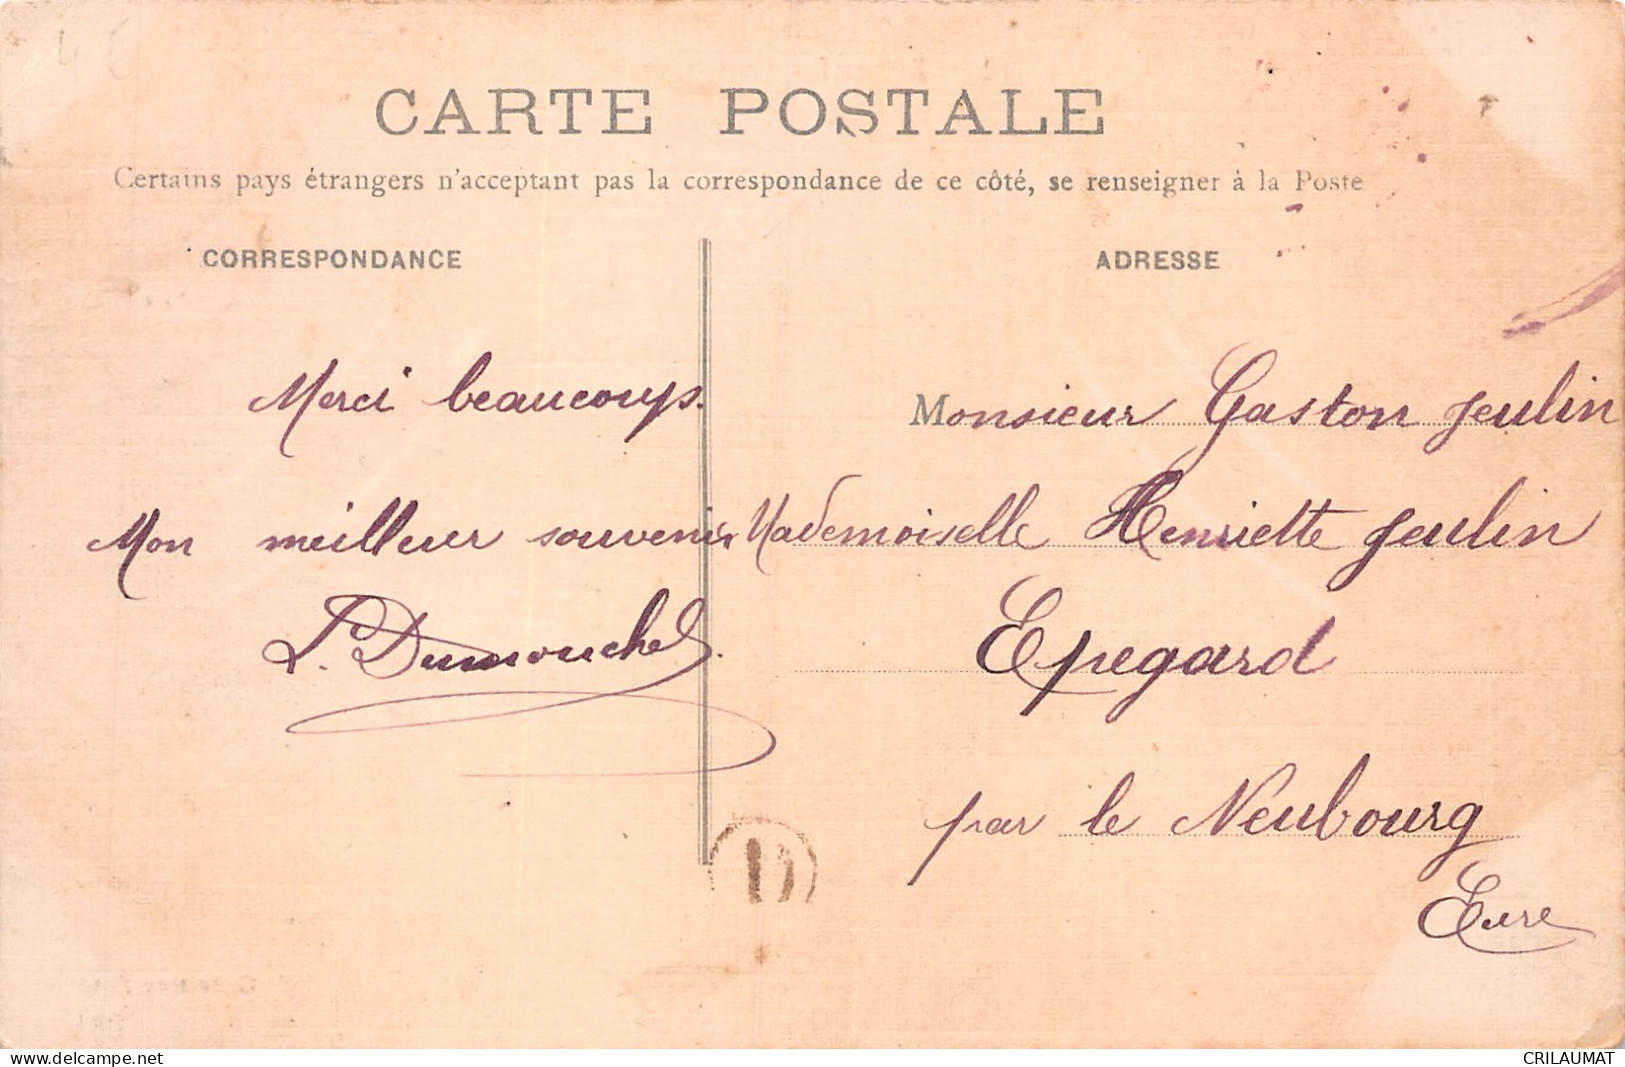 CARTE POSTALE
Certains pays étrangers n'acceptant pas la correspondance de ce côté, se renseigner à la Poste
CORRESPONDANCE
Merci beaucoup.
Mon meilleur souvenir
L. Dumouchel.
ADRESSE
Monsieur Gaston Jeulin
Mademoiselle Henriette Jeulin
Epegard
par le Neubourg
Eure
www.delcampe.net
CRILAUMAT